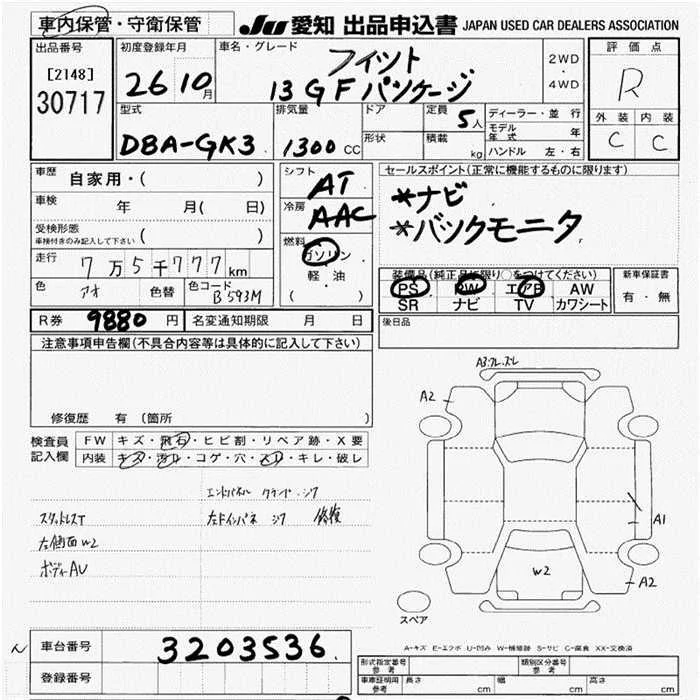 車内保管・守衛保管 JU 愛知 出品申込書 JAPAN USED CAR DEALERS ASSOCIATION
出品番号 初度登録年月 車名・グレード 評価点
[2148] 26 10月 フィット 2WD・4WD R
30717 13GFパッケージ
型式 排気量 ドア 定員 5人 ディーラー・並行 外装 内装
DBA-GK3 1300cc 形状 積載 kg モデル年式 年 C C
ハンドル 左・右
車歴 自家用・( ) シフト AT セールスポイント(正常に機能するものに限ります)
車検 年 月( 日) 冷房 AAC *ナビ
受検形態 ( ) *バックモニタ
車検付きのみ記入して下さい
燃料 ガソリン・軽・油 ( )
走行 7万5千777km 装備品(純正品に限り○をつけてください) 新車保証書
色 アオ 色替 色コード B593M PS PW エアB AW 有・無
SR ナビ TV カワシート
R券 9880円 名変通知期限 月 日 後日品
注意事項申告欄(不具合内容等は具体的に記入して下さい)
修復歴 有 (箇所 )
検査員記入欄 FW キズ・飛石・ヒビ割・リペア跡・X要
内装 キズ・汚れ・コゲ・穴・スレ・キレ・破レ
スタッドレスT 左ドインパネ ジワ 修復
左側面W2
ボディAU
A2
A1
A2
W2
スペア
A-キズ E-エクボ U-凹み W-補修跡 S-サビ C-腐食 XX-交換済
車台番号 3203536
登録番号
形式指定番号 参考 類別区分番号 参考
車庫証明用 参考 長さ cm 幅 cm 高さ cm